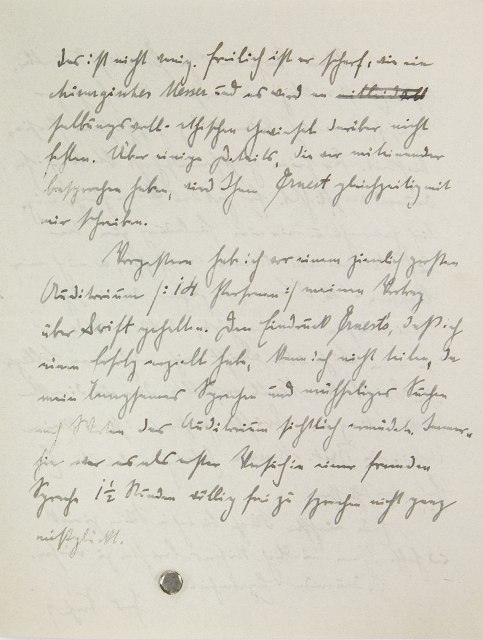 Das ist nicht wenig. Freilich ist er scharf, wie ein
chirurgisches Messer und es wird an
salbungsvoll-ethischen Gewinsel darüber nicht
fehlen. Über einige Details, die wir miteinander
besprochen haben, wird Ihnen Ernest gleichzeitig mit
mir schreiben.
Vorgestern hab ich vor einem ziemlich großen
Auditorium /: 14 Personen :/ meinen Vortrag
über Swift gehalten. Den Eindruck Ernests, daß ich
einen Erfolg erzielt habe, kann ich nicht teilen, da
mein langsames Sprechen und mühseliges Suchen
nach Worten das Auditorium sichtlich ermüdete. Immer-
hin war es als erster Versuch in einer fremden
Sprache 1½ Stunden völlig frei zu sprechen nicht ganz
mißglückt.